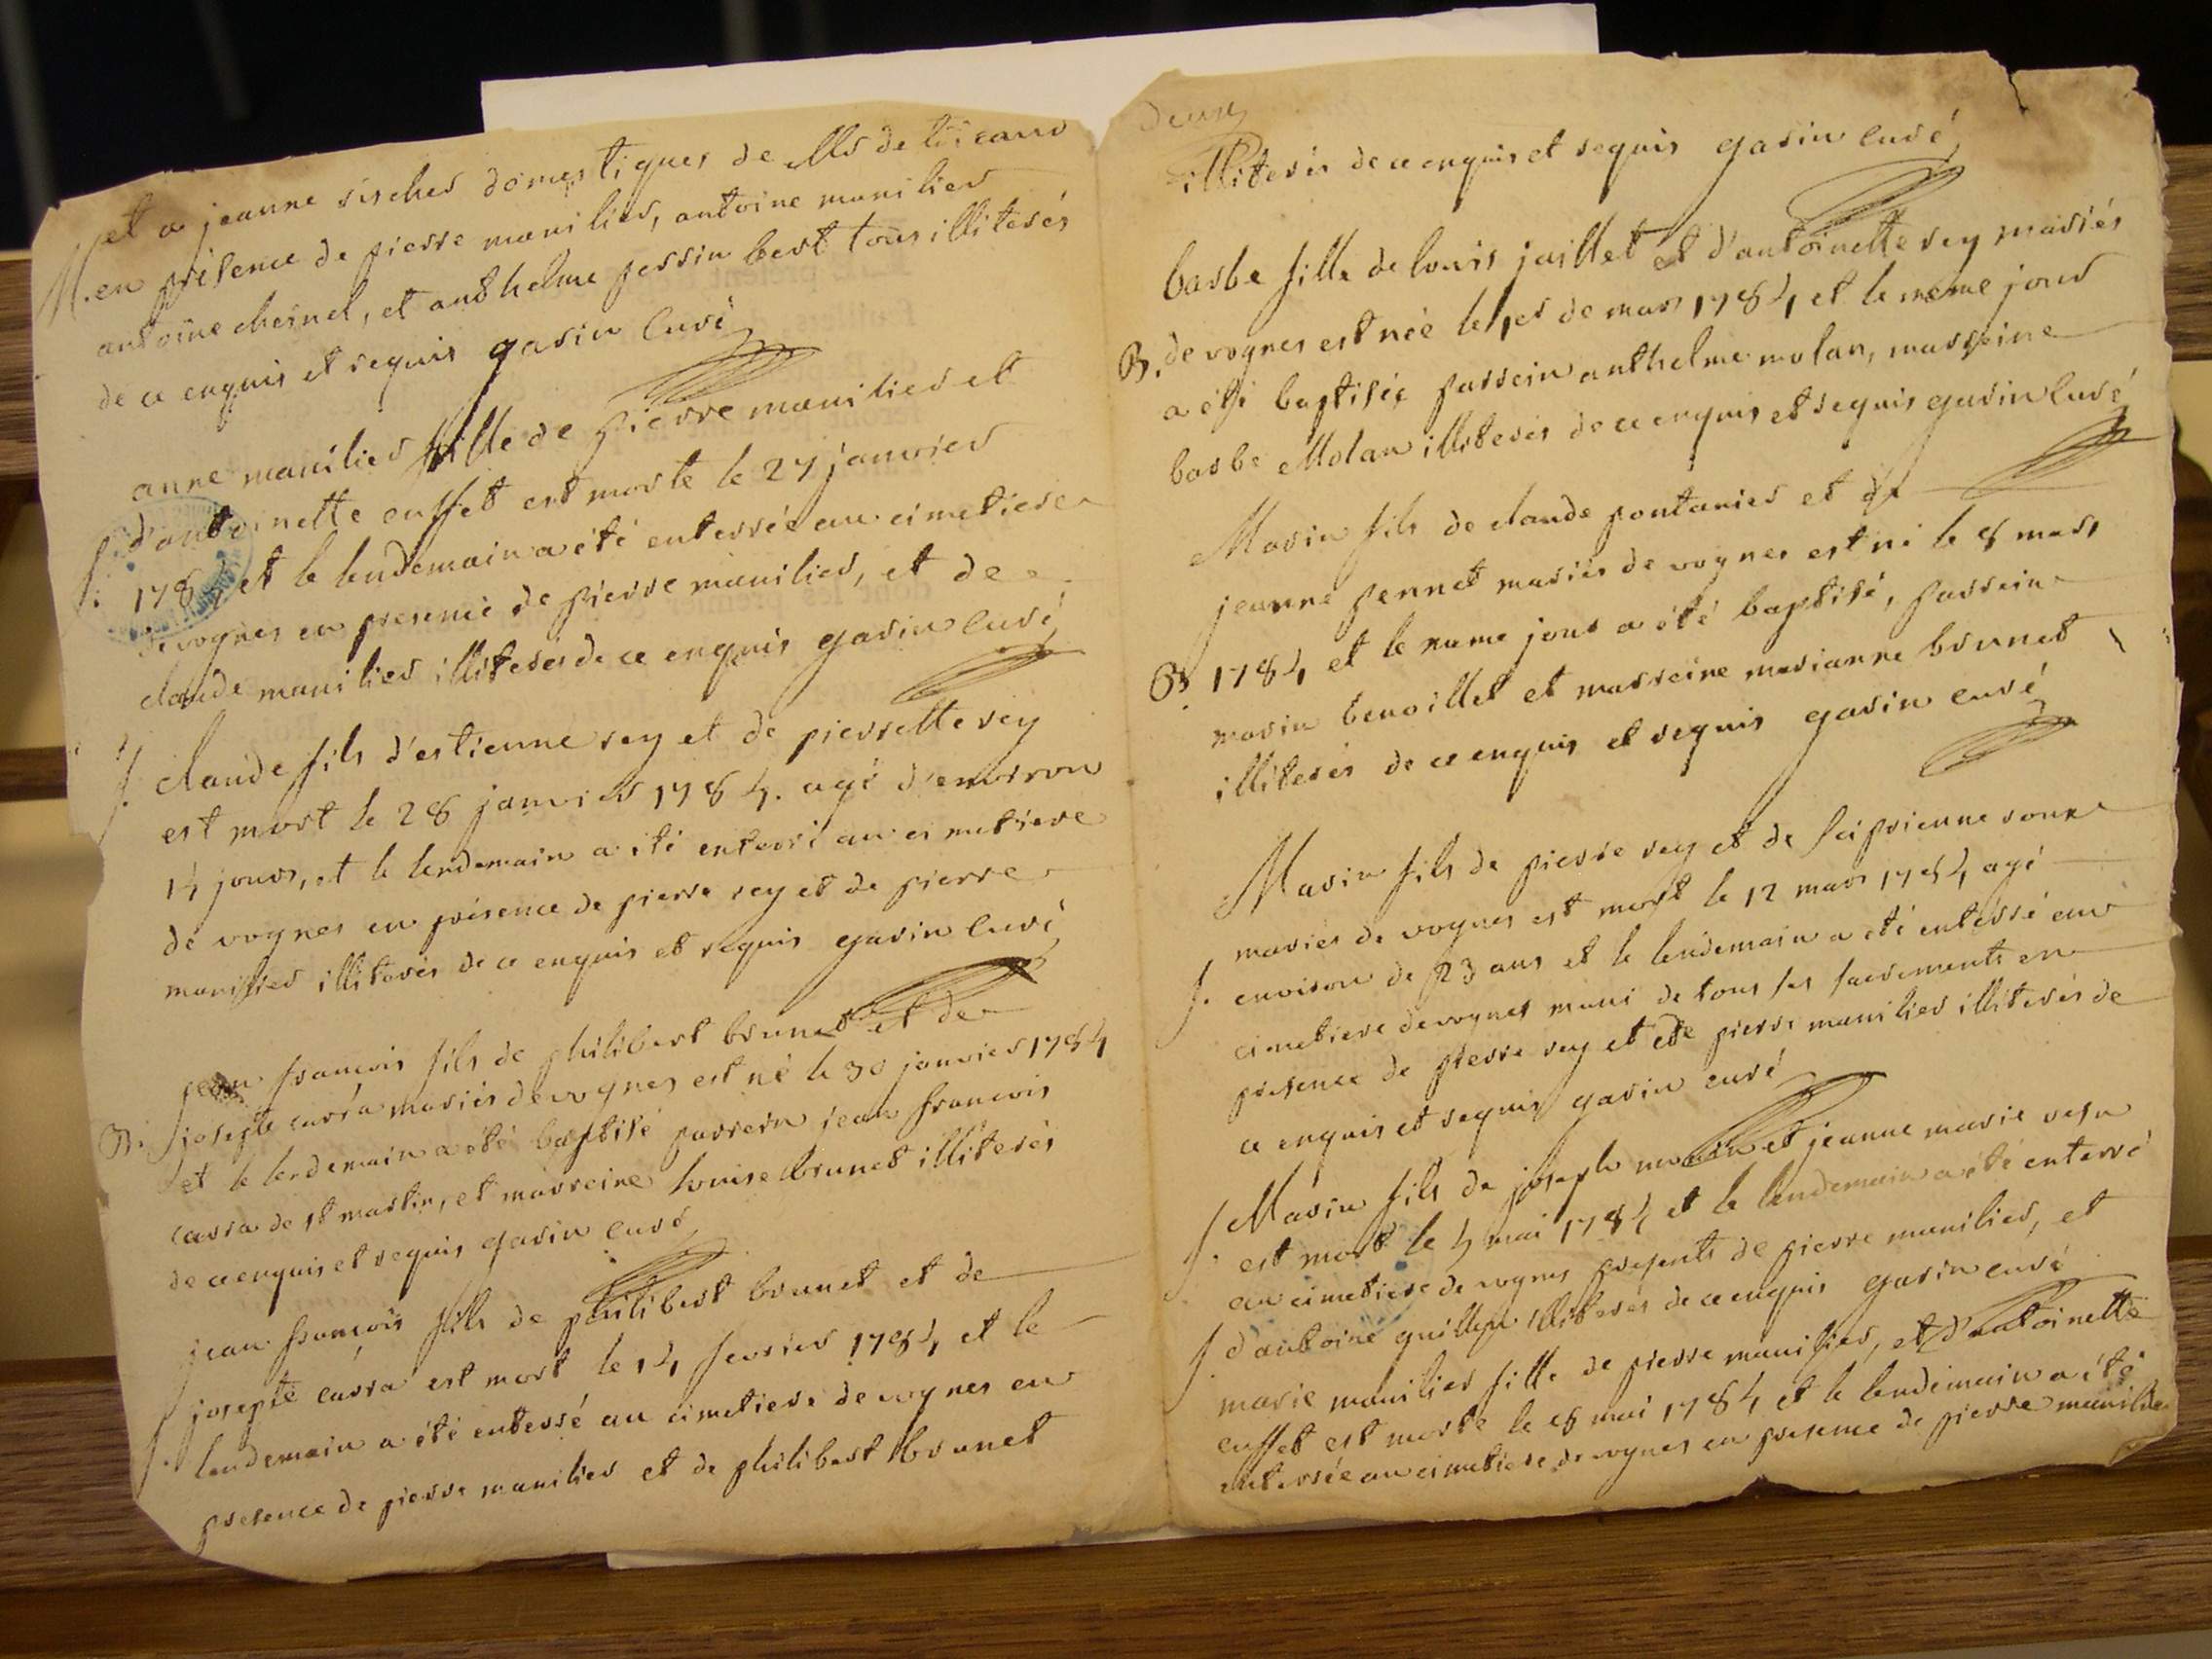 et a jeanne richer domestiques de Mr de
M. en présence de pierre manilier, antoine manilier
antoine cheinel, et anthelme perrin bert tous illiterés
de ce enquis et requis garin Curé
anne manilier fille de pierre manilier et
d'antoinette cusset est morte le 27 janvier
S. 1784 et le lendemain a été enterrée au cimetiere
de vognes en presence de pierre manilier, et de
claude manilier illiterés de ce enquis garin Curé
S. claude fils d'estienne rey et de pierrette rey
est mort le 28 janvier 1784. agé d'environ
14 jours, et le lendemain a été enterré au cimetiere
de vognes en présence de pierre rey et de pierre
manilier illiterés de ce enquis et requis garin Curé
jean françois fils de philibert brunet et de
B. josepte carra mariés de vognes est né le 30 janvier 1784
et le lendemain a été baptisé parrein jean françois
carra de st martin, et marreine louise brunet illiterés
de ce enquis et requis garin Curé
jean françois fils de philibert brunet et de
josepte carra est mort le 14 fevrier 1784 et le
S. lendemain a été enterré au cimetiere de vognes en
presence de pierre manilier et de philibert brunet
deux
illiterés de ce enquis et requis garin Curé
barbe fille de louis jaillet et d'antoinette rey mariés
B. de vognes est née le 1er de mars 1784 et le meme jour
a été baptisée parrein anthelme molan, marreine
barbe Molan illiterés de ce enquis et requis garin Curé
Marin fils de claude pontanier et de
jeanne pennet mariés de vognes est né le 8 mars
B. 1784 et le meme jour a été baptisé, parrein
marin benoillet et marreine marianne brunet
illiterés de ce enquis et requis garin curé
Marin fils de pierre rey et de
mariés de vognes est mort le 12 mars 1784 agé
S. environ de 23 ans et le lendemain a été enterré au
cimetiere de vognes muni de tous ses sacrements en
presence de pierre rey et de pierre manilier illiterés de
ce enquis et requis garin curé
S. Marin fils de joseph marin et jeanne marie
est mort le 4 mai 1784 et le lendemain a été enterré
au cimetiere de vognes presents de pierre manilier, et
S. d'antoine guillen illiterés de ce enquis garin curé
marie manilier fille de pierre manilier, et d'antoinette
cusset est morte le 8 mai 1784 et le lendemain a été
enterrée au cimetiere de vognes en presence de pierre manilier